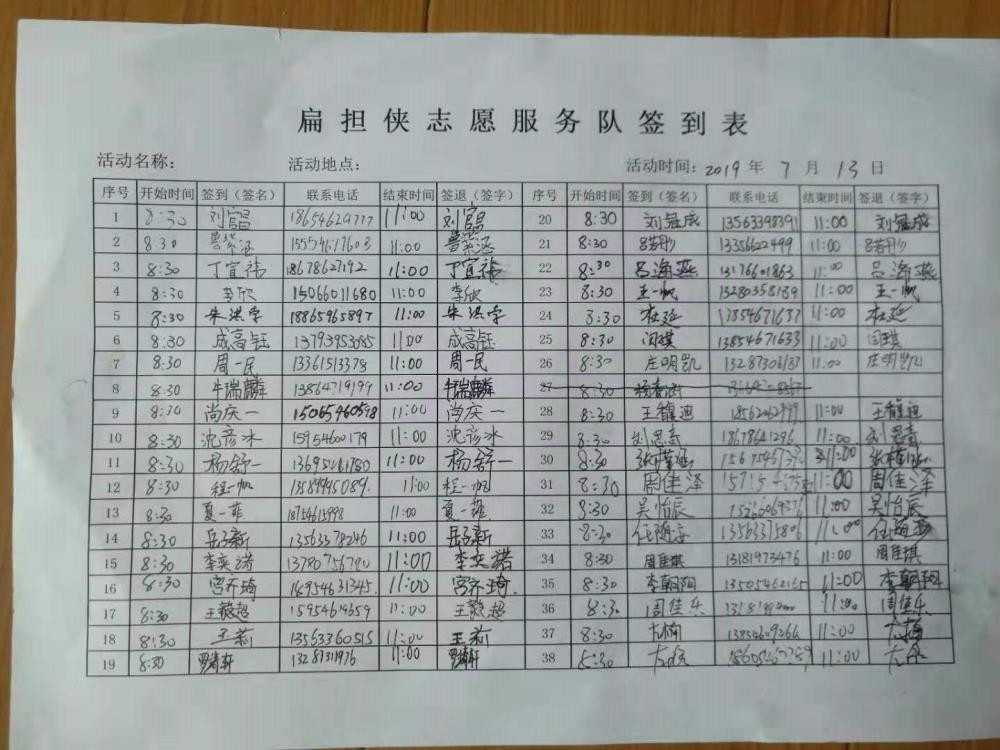 扁担侠志愿服务队签到表
活动名称： 活动地点： 活动时间：2019 年 7 月 13 日
序号 开始时间 签到（签名） 联系电话 结束时间 签退（签字） 序号 开始时间 签到（签名） 联系电话 结束时间 签退（签字）
1 8:30 刘官昌 11:00 刘官昌 20 8:30 刘冠成 13563398391 11:00 刘冠成
2 8:30 11:00 21 8:30 13356622499 11:00
3 8:30 丁宜祎 18678627192 11:00 丁宜祎 22 8:30 吕海燕 13176601863 11:00 吕海燕
4 8:30 李欣 15066011680 11:00 李欣 23 8:30 王一帆 13280358189 11:00 王一帆
5 8:30 朱洪学 18865965897 11:00 朱洪学 24 8:30 杜延 13854671637 11:00 杜延
6 8:30 成高钰 13793953085 11:00 成高钰 25 8:30 闫琪 13854671633 11:00 闫琪
7 8:30 周一民 13361513378 11:00 周一民 26 8:30 庄明凯 13287306187 11:00 庄明凯
8 8:30 牛瑞麟 13864719199 11:00 牛瑞麟 27 8:30
9 8:30 尚庆一 15065460598 11:00 尚庆一 28 8:30 王馥迪 11:00 王馥迪
10 8:30 沈彦冰 15954600179 11:00 沈彦冰 29 8:30 刘思奇 18678641296 11:00 刘思奇
11 8:30 杨舒一 13695461780 11:00 杨舒一 30 8:30 11:00
12 8:30 程一帆 13589945089. 11:00 程一帆 31 8:30 周佳泽 11:00 周佳泽
13 8:30 夏一菲 18754615998 11:00 夏一菲 32 8:30 吴怡辰 11:00 吴怡辰
14 8:30 岳新 13563378246 11:00 岳新 33 8:30 13563375806 11:00
15 8:30 李奕诺 11:00 李奕诺 34 8:30 周佳琪 13181973476 11:00 周佳琪
16 8:30 宫齐琦 11:00 宫齐琦 35 8:30 李朝阳 13505462165 11:00 李朝阳
17 8:30 王毅超 15954619659 11:00 王毅超 36 8:30 周佳乐 11:00 周佳乐
18 8:30 王莉 13563360515 11:00 王莉 37 8:30 13854609266 11:00
19 8:30 13287311976 11:00 38 8:30 11:00